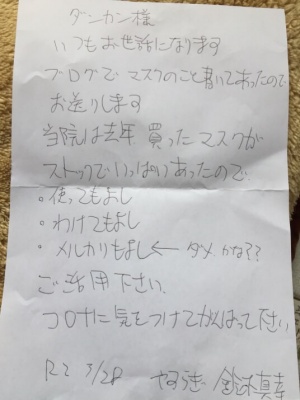 ダンカン様
いつもお世話になります
ブログでマスクのこと書いてあったので
お送りします
当院は去年買ったマスクが
ストックでいっぱいあったので、
○使ってもよし
○わけてもよし
○メルカリもよし← ダメかな??
ご活用下さい、
コロナに気をつけてがんばって下さい
R2 3/28 鈴木真幸